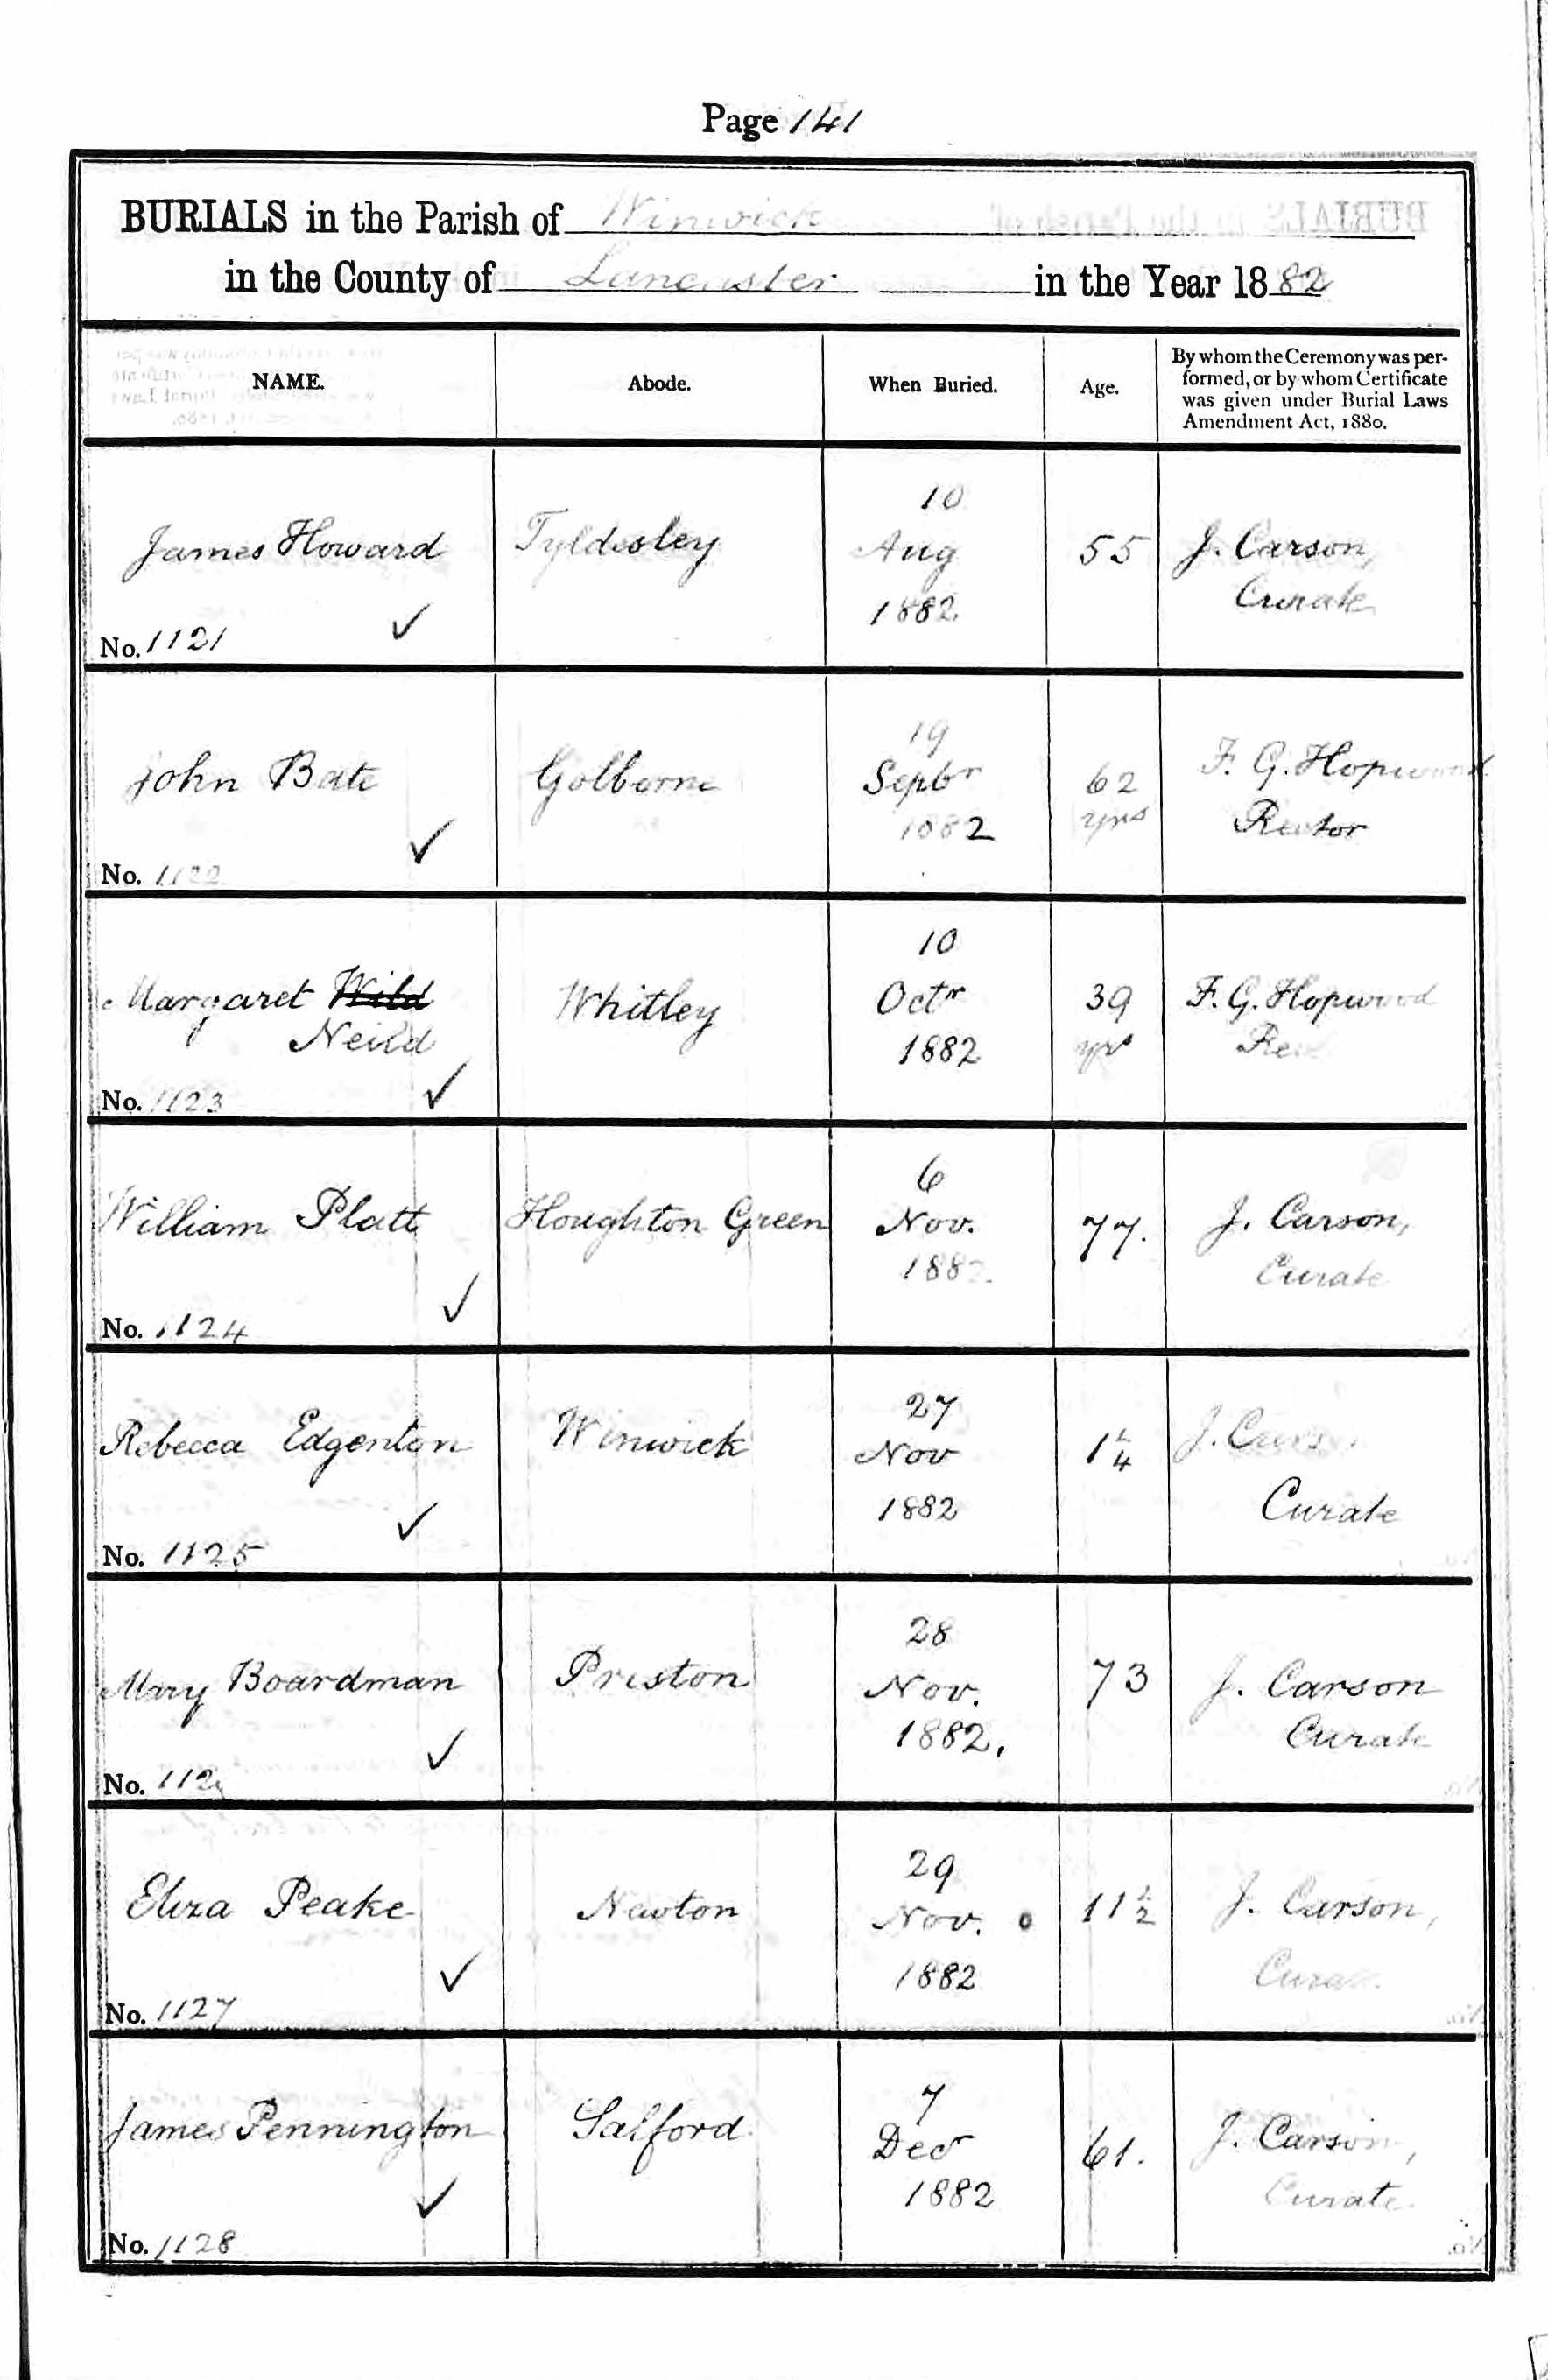 Page 141
BURIALS in the Parish of Winwick
in the County of Lancaster in the Year 1882
NAME.
Abode.
When Buried.
Age.
By whom the Ceremony was per-
formed, or by whom Certificate
was given under Burial Laws
Amendment Act, 1880.
James Howard
No. 1121
Tyldesley
10
Aug
1882
55
J. Carson,
Curate
John Bate
No. 1122
Golborne
19
Sepbr
1882
62
yrs
F. G. Hopwood
Rector
Margaret Wild
Neild
No. 1123
Whitley
10
Octr
1882
39
yrs
F. G. Hopwood
William Platt
No. 1124
Houghton Green
6
Nov.
1882.
77.
J. Carson,
Curate
Rebecca Edgerton
No. 1125
Winwick
27
Nov
1882
1 1/4
J. Carson
Curate
Mary Boardman
No. 112
Preston
28
Nov.
1882.
73
J. Carson
Curate
Eliza Peake
No. 1127
Newton
29
Nov.
1882
11 1/2
J. Carson,
Curate
James Pennington
No. 1128
Salford
7
Decr
1882
61.
J. Carson,
Curate.